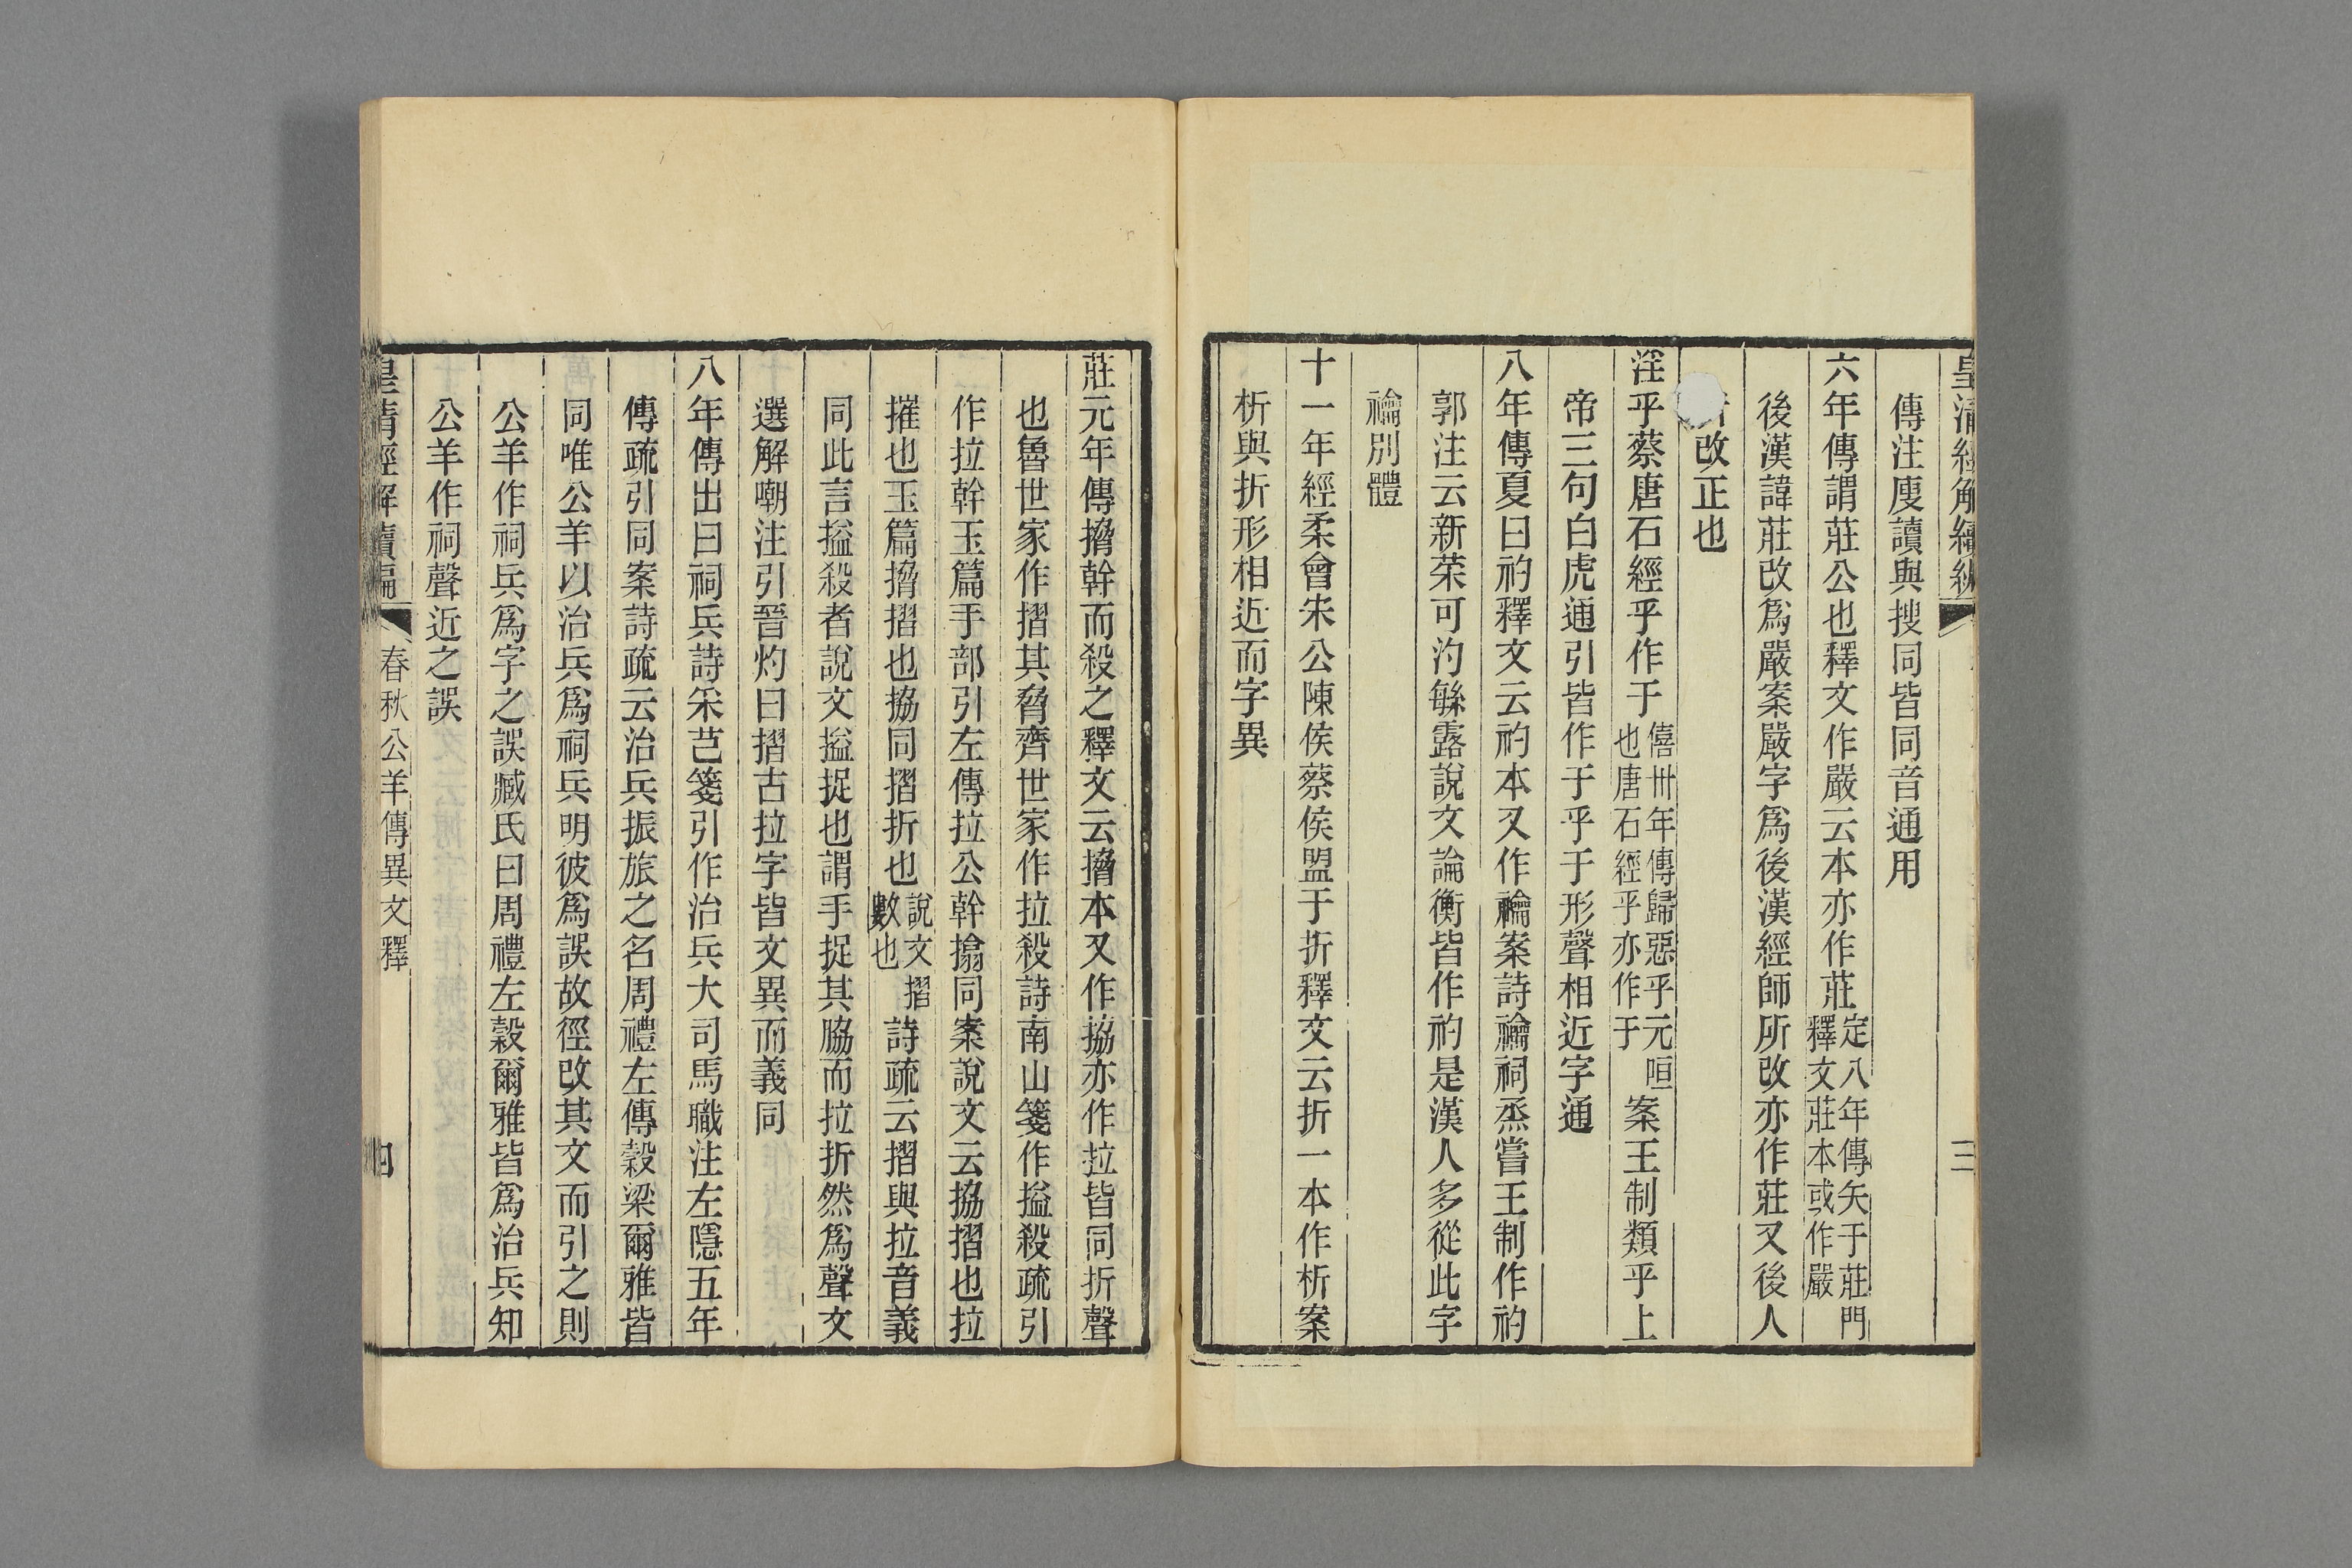 皇清經解續編
三
傳注廋讀與搜同皆同音通用
六年傳謂莊公也釋文作嚴云本亦作莊定八年傳矢于莊門釋文莊本或作嚴
後漢諱莊改爲嚴案嚴字爲後漢經師所改亦作莊又後人
改正也
淫乎蔡唐石經乎作于僖卅年傳歸惡乎元咺也唐石經乎亦作于案王制類乎上
帝三句白虎通引皆作于乎于形聲相近字通
八年傳夏曰礿釋文云礿本又作禴案詩禴祠烝嘗王制作礿
郭注云新菜可汋緐露說文論衡皆作礿是漢人多從此字
禴別體
十一年經柔會宋公陳侯蔡侯盟于折釋文云折一本作析案
析與折形相近而字異
莊元年傳搚幹而殺之釋文云搚本又作拹亦作拉皆同折聲
也魯世家作摺其脅齊世家作拉殺詩南山箋作搤殺疏引
作拉幹玉篇手部引左傳拉公幹搚同案說文云拹摺也拉
摧也玉篇搚摺也拹同摺折也說文摺敗也詩疏云摺與拉音義
同此言搤殺者說文搤捉也謂手捉其脇而拉折然爲聲文
選解嘲注引晉灼曰摺古拉字皆文異而義同
八年傳出曰祠兵詩采芑箋引作治兵大司馬職注左隱五年
傳疏引同案詩疏云治兵振旅之名周禮左傳穀梁爾雅皆
同唯公羊以治兵爲祠兵明彼爲誤故徑改其文而引之則
公羊作祠兵爲字之誤臧氏曰周禮左穀爾雅皆爲治兵知
公羊作祠聲近之誤
皇清經解續編
春秋公羊傳異文釋
四